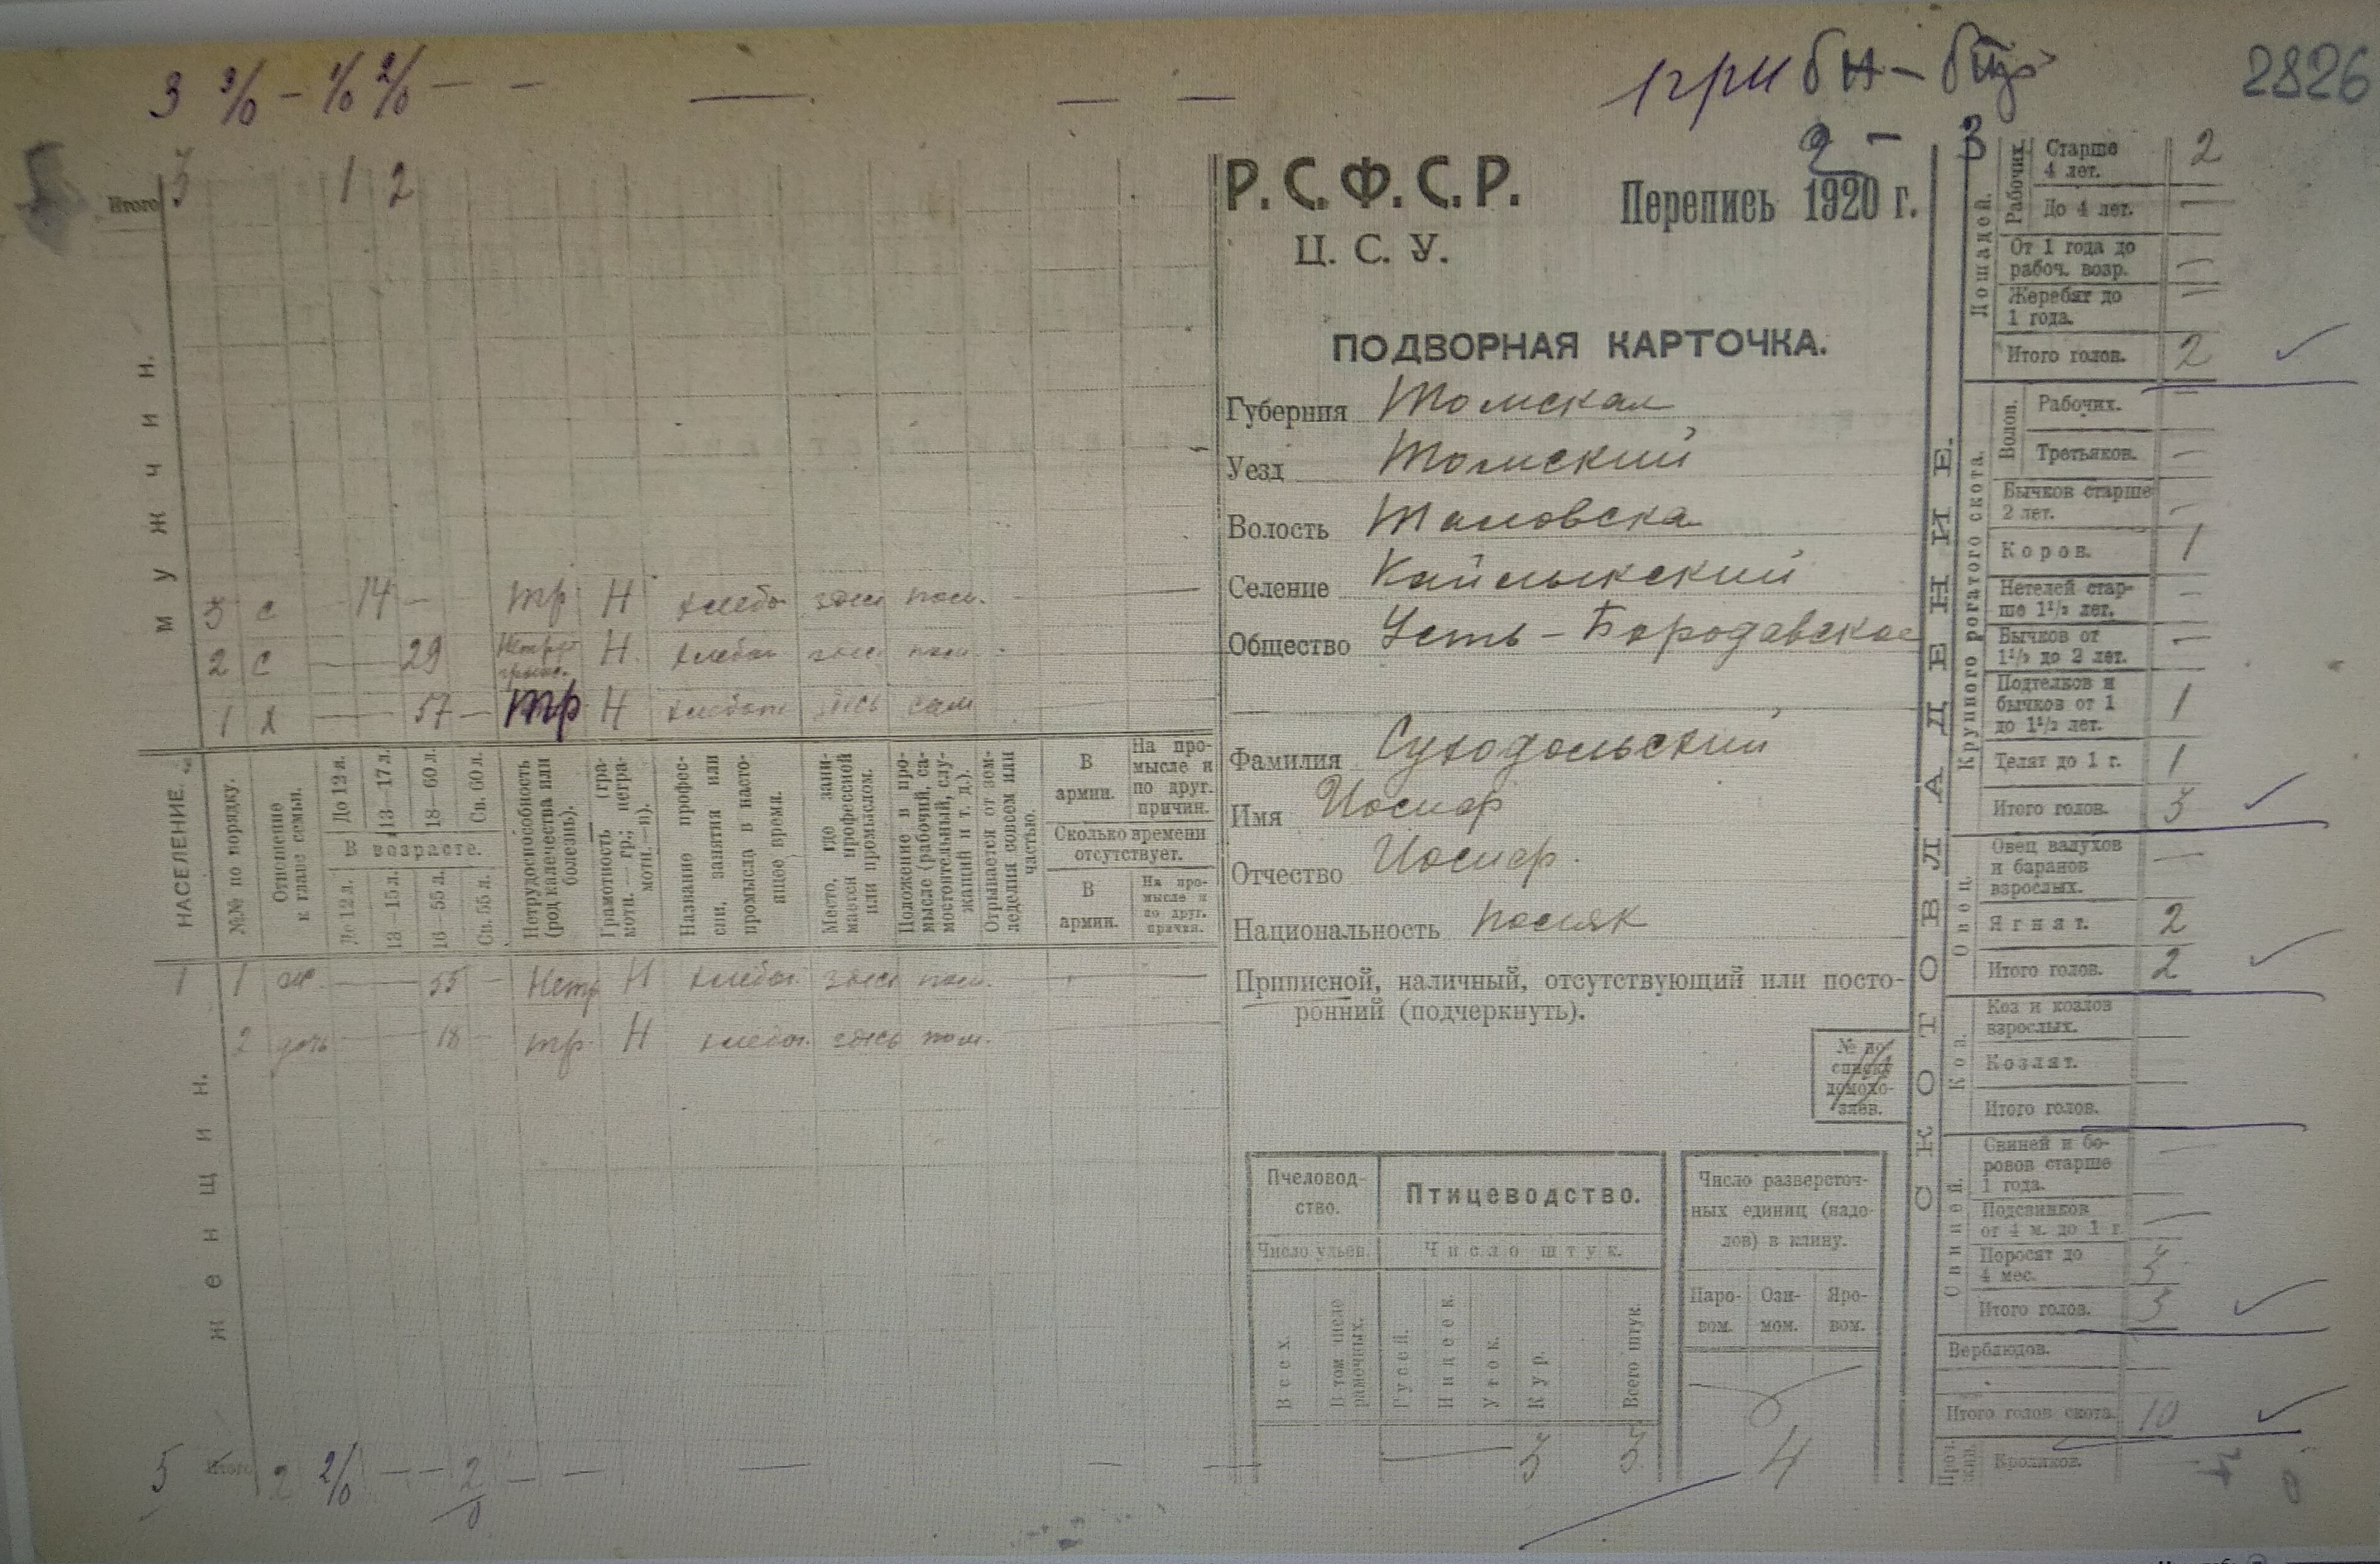 3 3/0 — 1/0 2/0 — —
2826
2 — 3
Итого 3 1 2
МУЖЧИН.
3 с — 14 — тр Н хлебо здесь пом.
2 с — 29 Н хлебоп здесь пом.
1 х — 57 — тр Н хлебоп здесь сам
НАСЕЛЕНИЕ.
№№ по порядку.
Отношение к главе семьи.
До 12 л.
13—17 л.
18—60 л.
Св. 60 л.
В возрасте.
До 12 л.
13—15 л.
16—55 л.
Св. 55 л.
Нетрудоспособность (род калечества или болезнь).
Грамотность (грамотн. — гр.; неграмотн.—н).
Название профессии, занятия или промысла в настоящее время.
Место, где занимается профессией или промыслом.
Положение в промысле (рабочий, самостоятельный, служащий и т. д.).
Отрывается от земледелия совсем или частью.
В армии.
На промысле и по друг. причин.
Сколько времени отсутствует.
В армии.
На промысле и по друг. причин.
1 1 ж. — 55 — Нетр Н хлебоп. здесь пом.
2 дочь — 18 — тр. Н хлебоп. здесь пом.
ЖЕНЩИН.
5 Итого 2 2/0 — — 2/0 — —
Р.С.Ф.С.Р.
Перепись 1920 г.
Ц.С.У.
ПОДВОРНАЯ КАРТОЧКА.
Губерния Томская
Уезд Томский
Волость
Селение
Общество Усть-Бородавское
Фамилия Суходольский
Имя Иосиф
Отчество Иосиф.
Национальность поляк
Приписной, наличный, отсутствующий или посто-
ронний (подчеркнуть).
№ по списку домохозяев.
Пчеловод-
ство.
Птицеводство.
Число ульев.
Число штук.
Всех.
В том числе рамочных.
Гусей.
Индеек.
Уток.
Кур.
Всего штук.
3 3
Число разверсточ-
ных единиц (наде-
лов) в клину.
Паро-
вом.
Ози-
мом.
Яро-
вом.
4
СКОТОВЛАДЕНИЕ.
Лошадей.
Рабочих.
Старше 4 лет. 2
До 4 лет. —
От 1 года до рабоч. возр. —
Жеребят до 1 года. —
Итого голов. 2
Крупного рогатого скота.
Волов.
Рабочих. —
Третьяков. —
Бычков старше 2 лет. —
Коров. 1
Нетелей старше 1 1/2 лет. —
Бычков от 1 1/2 до 2 лет. —
Подтелков и бычков от 1 до 1 1/2 лет. 1
Телят до 1 г. 1
Итого голов. 3
Овец.
Овец валухов и баранов взрослых. —
Ягнят. 2
Итого голов. 2
Коз.
Коз и козлов взрослых.
Козлят.
Итого голов.
Свиней.
Свиней и боровов старше 1 года. —
Подсвинков от 4 м. до 1 г. —
Поросят до 4 мес. 3
Итого голов. 3
Верблюдов.
Итого голов скота. 10
Кроликов.